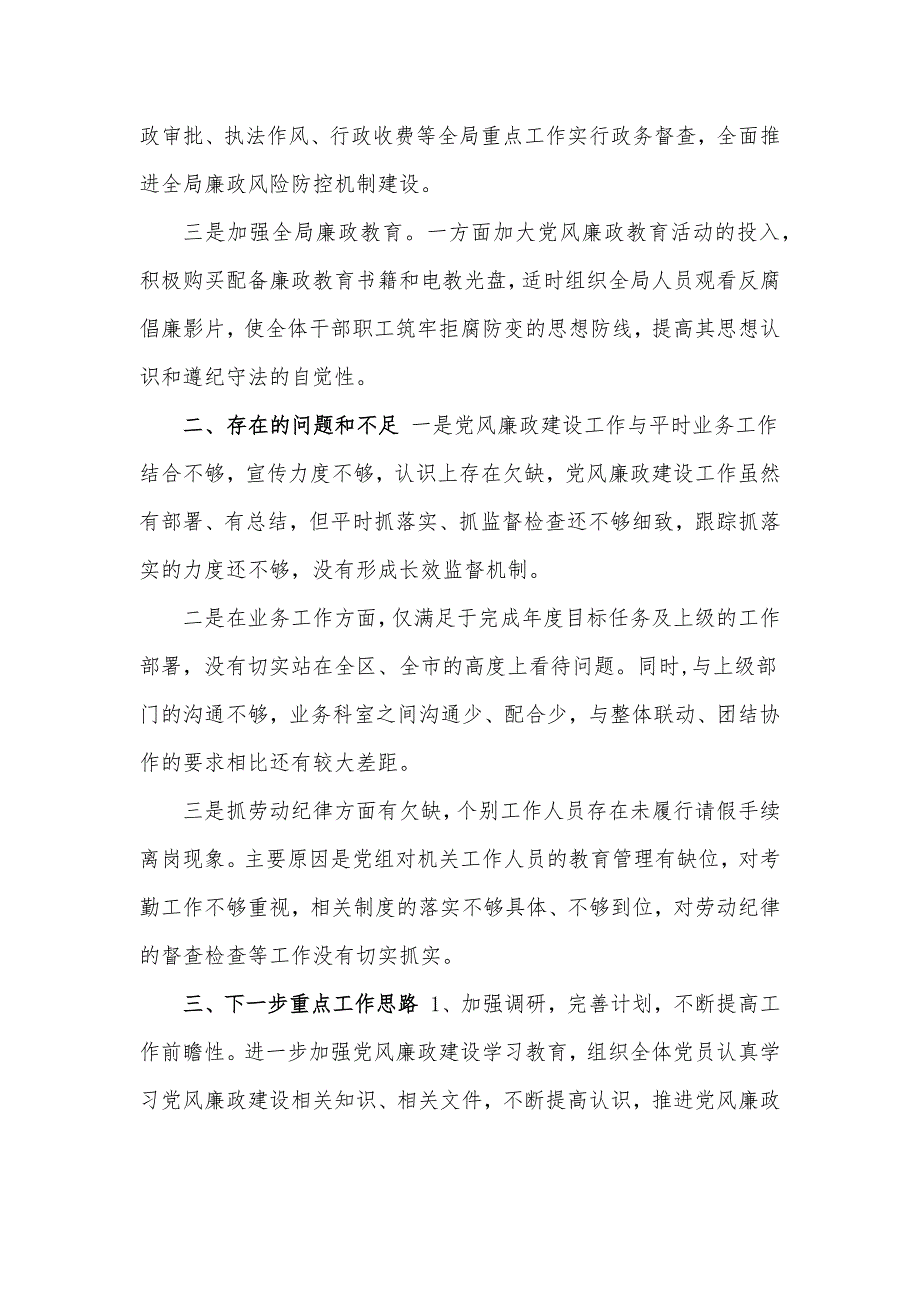 政审批、执法作风、行政收费等全局重点工作实行政务督查，全面推
进全局廉政风险防控机制建设。
三是加强全局廉政教育。一方面加大党风廉政教育活动的投入，
积极购买配备廉政教育书籍和电教光盘，适时组织全局人员观看反腐
倡廉影片，使全体干部职工筑牢拒腐防变的思想防线，提高其思想认
识和遵纪守法的自觉性。
二、存在的问题和不足 一是党风廉政建设工作与平时业务工作
结合不够，宣传力度不够，认识上存在欠缺，党风廉政建设工作虽然
有部署、有总结，但平时抓落实、抓监督检查还不够细致，跟踪抓落
实的力度还不够，没有形成长效监督机制。
二是在业务工作方面，仅满足于完成年度目标任务及上级的工作
部署，没有切实站在全区、全市的高度上看待问题。同时，与上级部
门的沟通不够，业务科室之间沟通少、配合少，与整体联动、团结协
作的要求相比还有较大差距。
三是抓劳动纪律方面有欠缺，个别工作人员存在未履行请假手续
离岗现象。主要原因是党组对机关工作人员的教育管理有缺位，对考
勤工作不够重视，相关制度的落实不够具体、不够到位，对劳动纪律
的督查检查等工作没有切实抓实。
三、下一步重点工作思路 1、加强调研，完善计划，不断提高工
作前瞻性。进一步加强党风廉政建设学习教育，组织全体党员认真学
习党风廉政建设相关知识、相关文件，不断提高认识，推进党风廉政